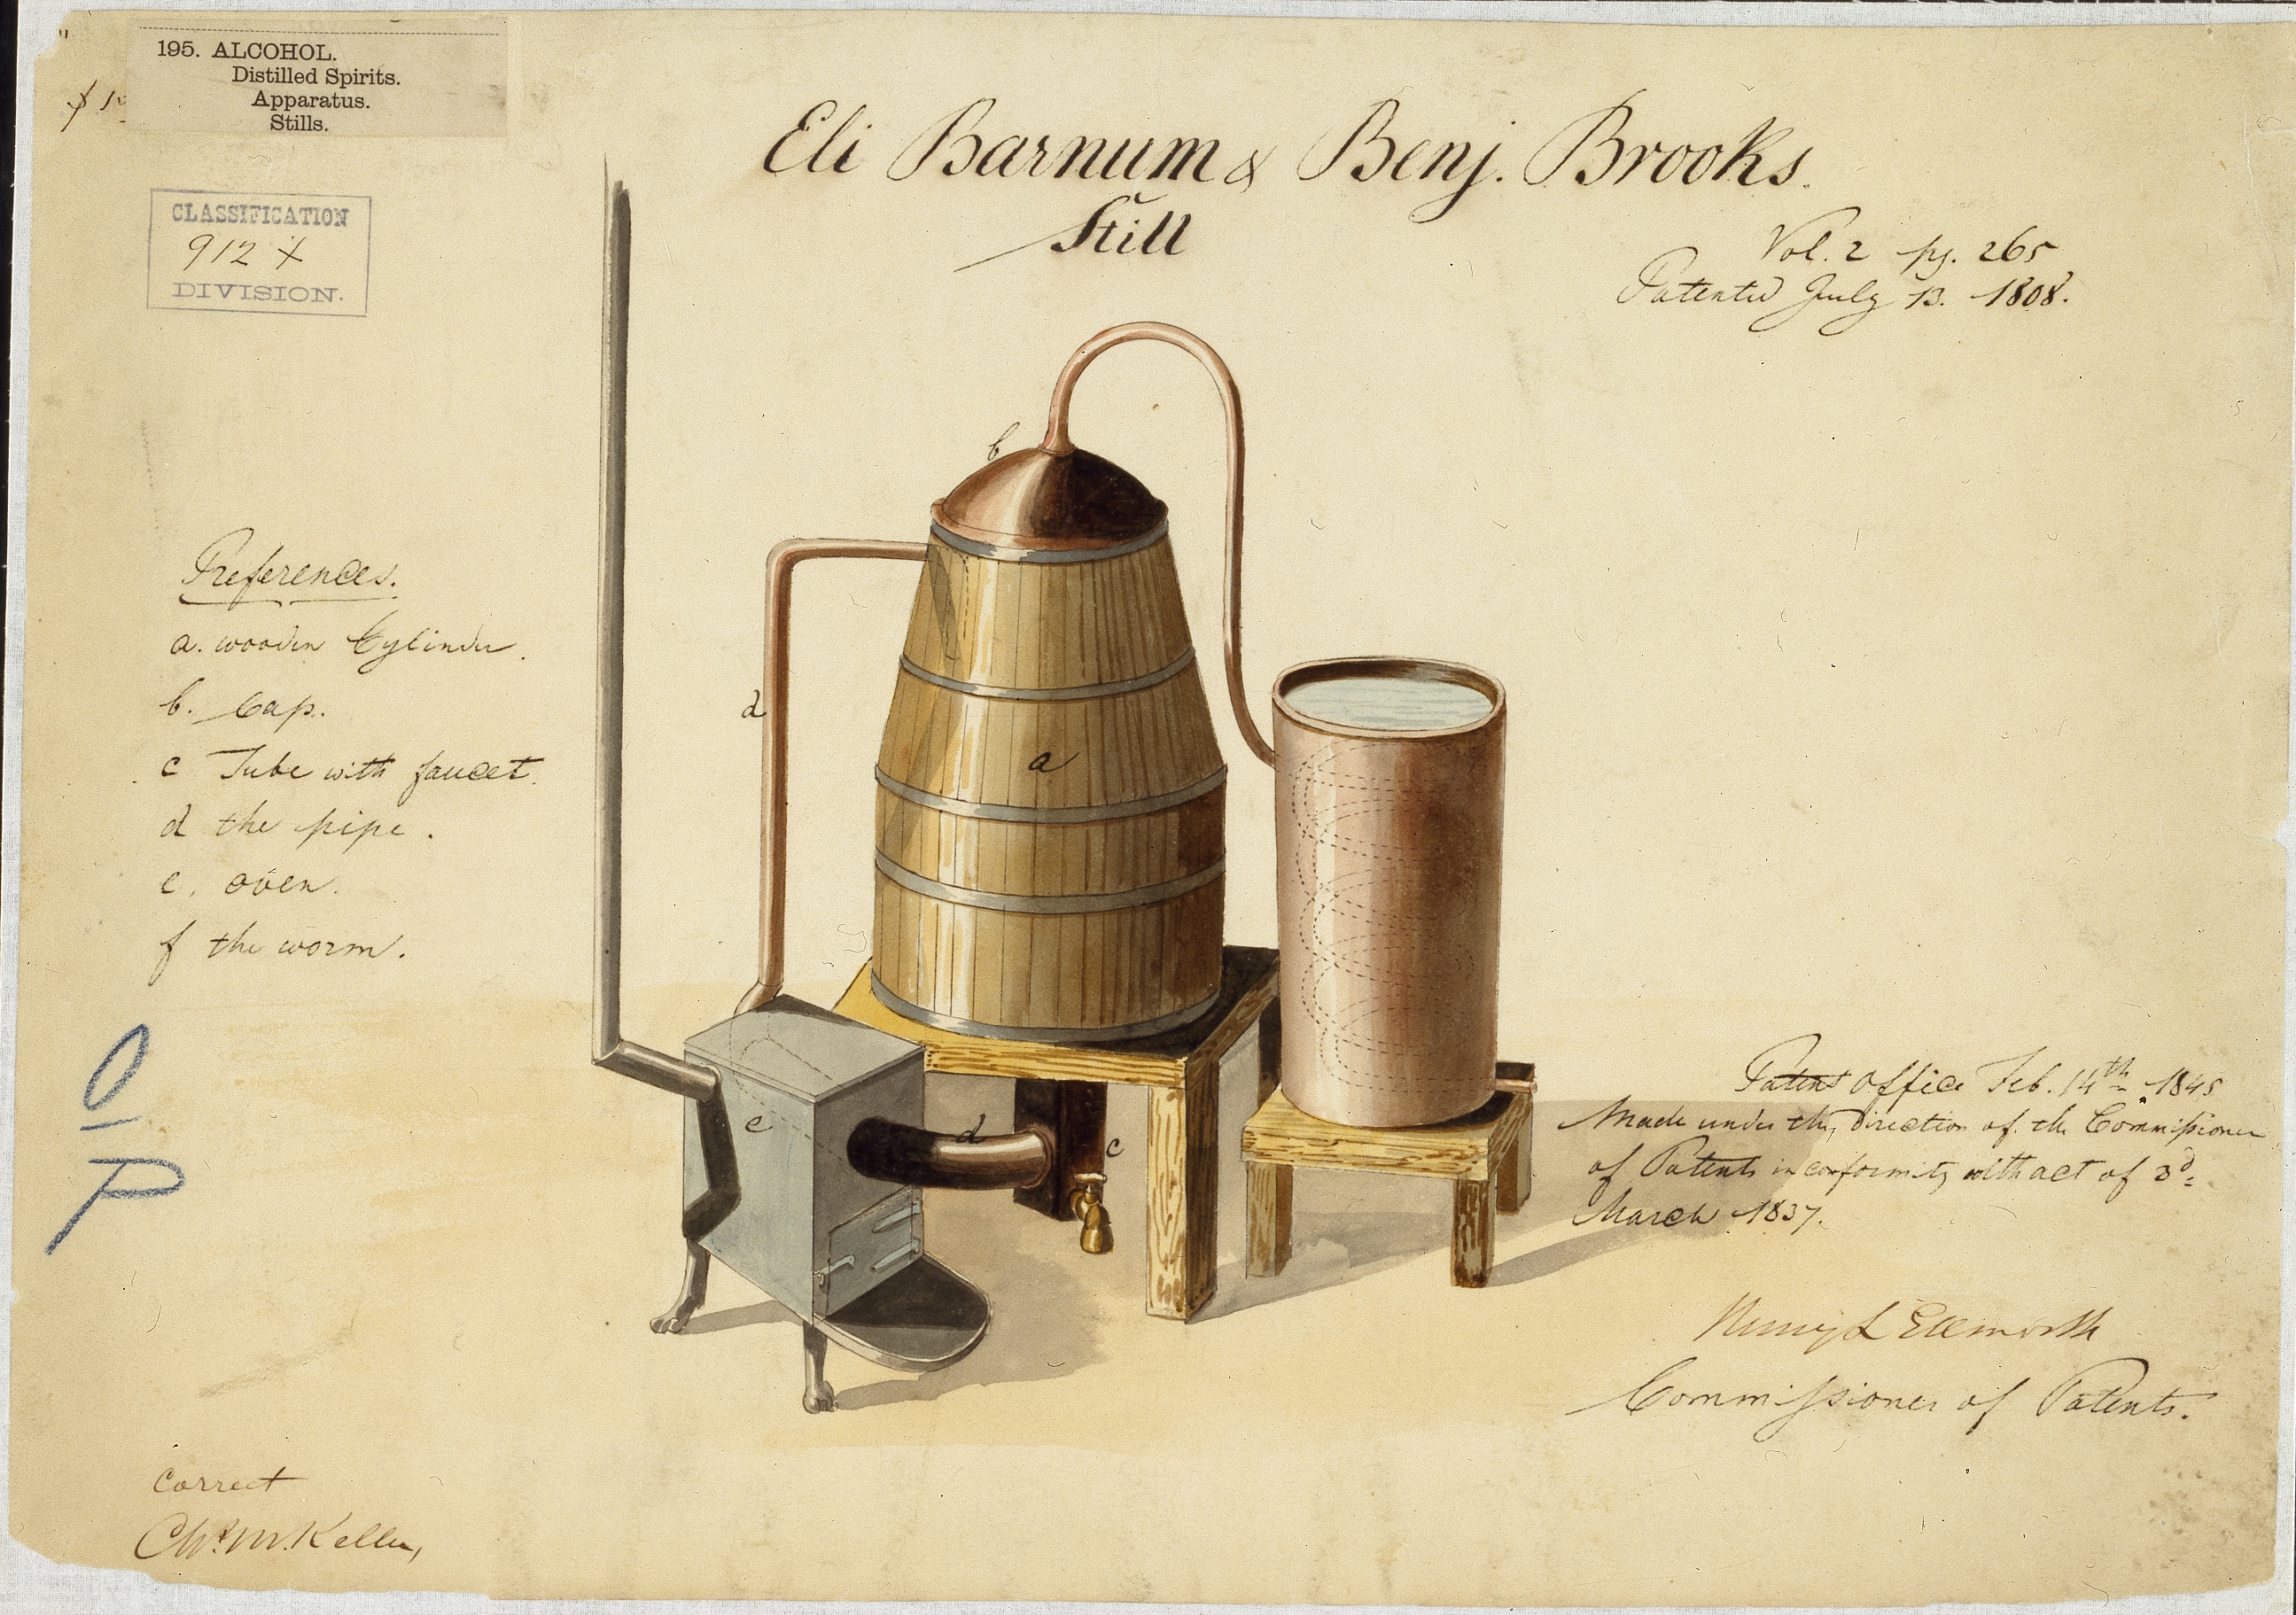 195. ALCOHOL.
Distilled Spirits.
Apparatus.
Stills.
CLASSIFICATION
912 X
DIVISION.
Eli Barnum & Benj. Brooks.
Still
Vol. 2 pg. 265
Patented July 13. 1808.
References.
a. wooden Cylinder.
b. Cap.
c Tube with faucet.
d the pipe.
e. oven.
f the worm.
b
d
a
e
d
c
O
P
Patent Office Feb. 14th 1845
Made under the, direction of the Commissioner
of Patents in conformity with act of 3d
March 1837.
Henry L Ellsworth
Commissioner of Patents.
Correct
M. Keller,